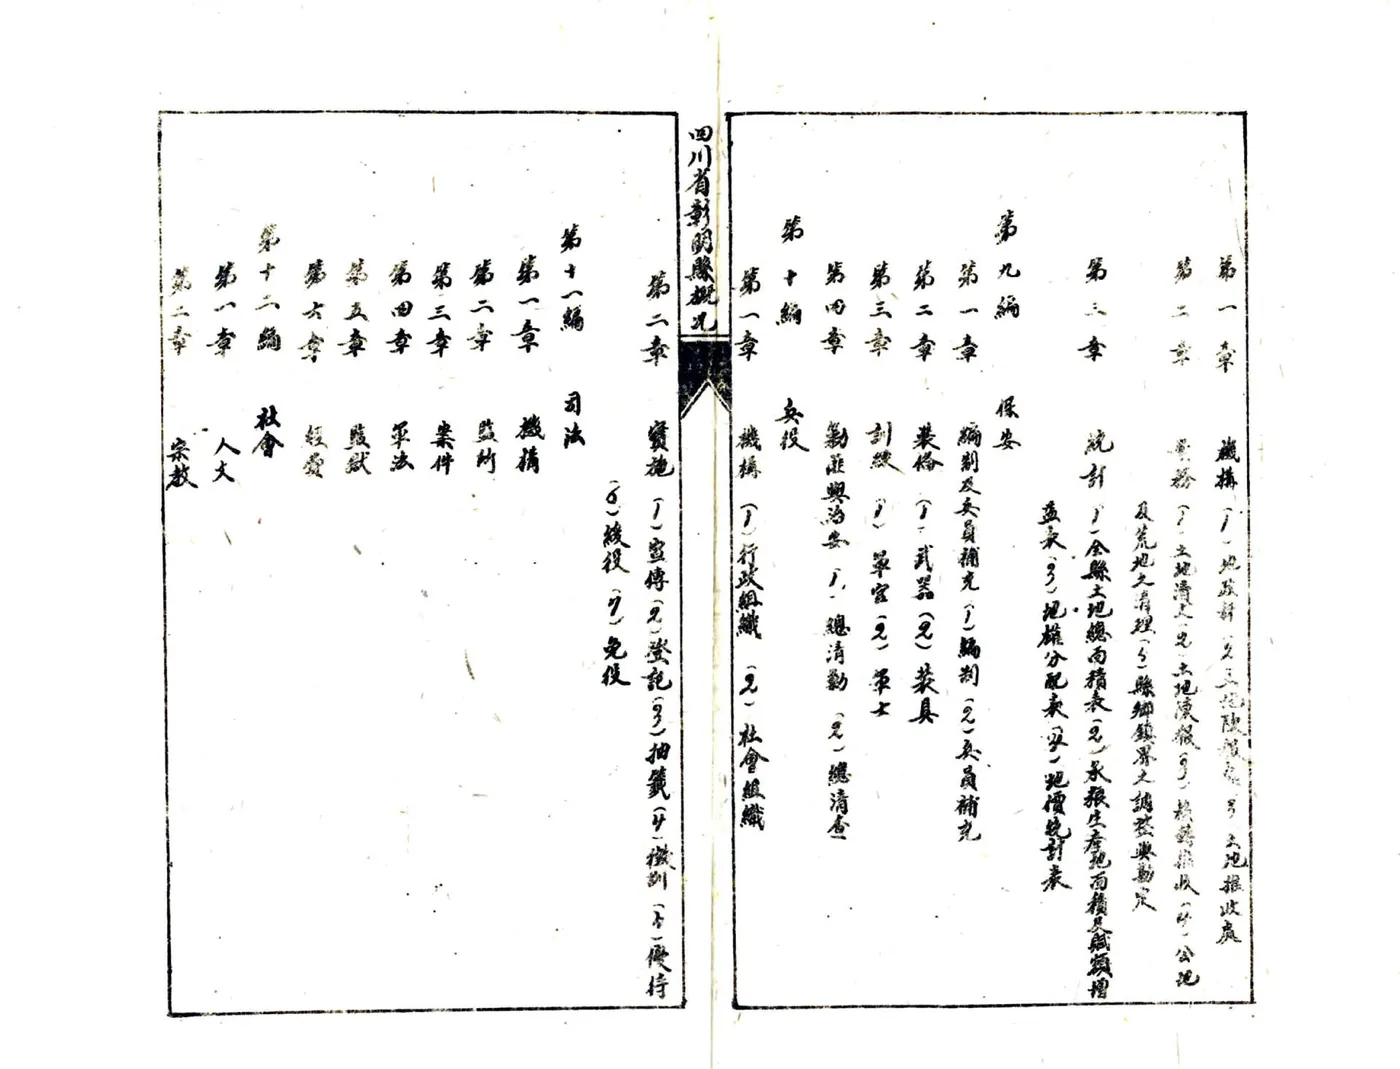 第一章　機構　(1)地政科(2)土地陳報處(3)土地推收處
第二章　業務　(1)土地清丈(2)土地陳報(3)推收(4)公地
及荒地之清理(5)縣鄉鎮界之調整與勘定
第三章　統計　(1)全縣土地總面積表(2)承粮生產地面積及賦額增
益表(3)地權分配表(4)地價統計表
第九編　保安
第一章　編制及兵員補充(1)編制(2)兵員補充
第二章　裝備(1)武器(2)裝具
第三章　訓練(1)軍官(2)軍士
第四章　勦匪與治安(1)總清勦(2)總清查
第十編　兵役
第一章　機構(1)行政組織(2)社會組織
四川省彰明縣概況
第二章　實施(1)宣傳(2)登記(3)抽籤(4)徵訓(5)優待
(6)緩役(7)免役
第十一編　司法
第一章　機構
第二章　監所
第三章　案件
第四章　軍法
第五章　監獄
第六章　經費
第十二編　社會
第一章　人文
第二章　宗教